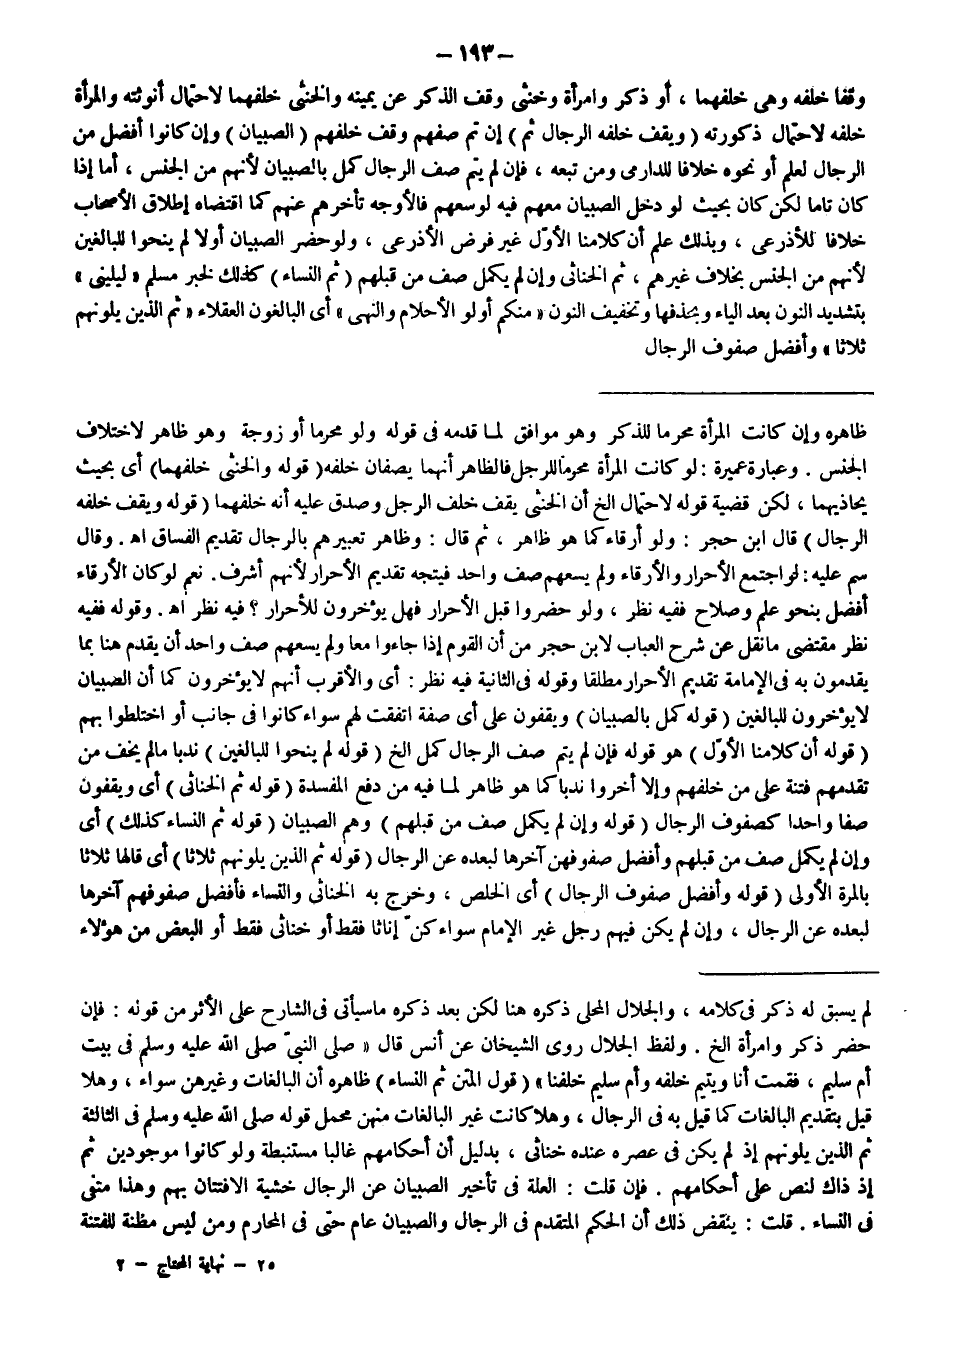 – ١٩٣ –
وقفا خلفه وهى خلفهما ، أو ذكر وامرأة وخنثى وقف الذكر عن يمينه والخنثى خلفهما لاحتمال أنوثته والمرأة
خلفه لاحتمال ذكورته ( ويقف خلفه الرجال ثم ) إن تم صفهم وقف خلفهم ( الصبيان ) وإن كانوا أفضل من
الرجال لعلم أو نحوه خلافا للدارمى ومن تبعه ، فإن لم يتم صف الرجال كمل بالصبيان لأنهم من الجنس ، أما إذا
كان تاما لكن كان بحيث لو دخل الصبيان معهم فيه لوسعهم فالأوجه تأخرهم عنهم كما اقتضاه إطلاق الأصحاب
خلافا للأذرعى ، وبذلك علم أن كلامنا الأوّل غير فرض الأذرعى ، ولو حضر الصبيان أولا لم ينحوا للبالغين
لأنهم من الجنس بخلاف غيرهم ، ثم الخناثى وإن لم يكمل صف من قبلهم ( ثم النساء ) كذلك لخبر مسلم « ليلينى »
بتشديد النون بعد الياء وبحذفها وتخفيف النون « منكم أولو الأحلام والنهى » أى البالغون العقلاء « ثم الذين يلونهم
ثلاثا » وأفضل صفوف الرجال
ظاهره وإن كانت المرأة محرما للذكر وهو موافق لما قدمه فى قوله ولو محرما أو زوجة وهو ظاهر لاختلاف
الجنس . وعبارة عميرة : لو كانت المرأة محرما للرجل فالظاهر أنهما يصفان خلفه ( قوله والخنثى خلفهما ) أى بحيث
يحاذيهما ، لكن قضية قوله لاحتمال الخ أن الخنثى يقف خلف الرجل وصدق عليه أنه خلفهما ( قوله ويقف خلفه
الرجال ) قال ابن حجر : ولو أرقاء كما هو ظاهر ، ثم قال : وظاهر تعبيرهم بالرجال تقديم الفساق اه . وقال
سم عليه : لو اجتمع الأحرار والأرقاء ولم يسعهم صف واحد فيتجه تقديم الأحرار لأنهم أشرف . نعم لو كان الأرقاء
أفضل بنحو علم وصلاح ففيه نظر ، ولو حضروا قبل الأحرار فهل يؤخرون للأحرار ؟ فيه نظر اه . وقوله ففيه
نظر مقتضى مانقل عن شرح العباب لابن حجر من أن القوم إذا جاءوا معا ولم يسعهم صف واحد أن يقدم هنا بما
يقدمون به فى الإمامة تقديم الأحرار مطلقا وقوله فى الثانية فيه نظر : أى والأقرب أنهم لايؤخرون كما أن الصبيان
لايؤخرون للبالغين ( قوله كمل بالصبيان ) ويقفون على أى صفة اتفقت لهم سواء كانوا فى جانب أو اختلطوا بهم
( قوله أن كلامنا الأوّل ) هو قوله فإن لم يتم صف الرجال كمل الخ ( قوله لم ينحوا للبالغين ) ندبا مالم يخف من
تقدمهم فتنة على من خلفهم وإلا أخروا ندبا كما هو ظاهر لما فيه من دفع المفسدة ( قوله ثم الخناثى ) أى ويقفون
صفا واحدا كصفوف الرجال ( قوله وإن لم يكمل صف من قبلهم ) وهم الصبيان ( قوله ثم النساء كذلك ) أى
وإن لم يكمل صف من قبلهم وأفضل صفوفهن آخرها لبعده عن الرجال ( قوله ثم الذين يلونهم ثلاثا ) أى قالها ثلاثا
بالمرة الأولى ( قوله وأفضل صفوف الرجال ) أى الخلص ، وخرج به الخناثى والنساء فأفضل صفوفهم آخرها
لبعده عن الرجال ، وإن لم يكن فيهم رجل غير الإمام سواء كنّ إناثا فقط أو خناثى فقط أو البعض من هؤلاء
لم يسبق له ذكر فى كلامه ، والجلال المحلى ذكره هنا لكن بعد ذكره ماسيأتى فى الشارح على الأثر من قوله : فإن
حضر ذكر وامرأة الخ . ولفظ الجلال روى الشيخان عن أنس قال « صلى النبىّ صلى الله عليه وسلم فى بيت
أم سليم ، فقمت أنا ويتيم خلفه وأم سليم خلفنا » ( قول المتن ثم النساء ) ظاهره أن البالغات وغيرهن سواء ، وهلا
قيل بتقديم البالغات كما قيل به فى الرجال ، وهلا كانت غير البالغات منهن محمل قوله صلى الله عليه وسلم فى الثالثة
ثم الذين يلونهم إذ لم يكن فى عصره عنده خناثى ، بدليل أن أحكامهم غالبا مستنبطة ولو كانوا موجودين ثم
إذ ذاك لنص على أحكامهم . فإن قلت : العلة فى تأخير الصبيان عن الرجال خشية الافتتان بهم وهذا منتفى
فى النساء . قلت : ينقض ذلك أن الحكم المتقدم فى الرجال والصبيان عام حتى فى المحارم ومن ليس مظنة للفتنة
٢٥ – نهاية المحتاج – ٢